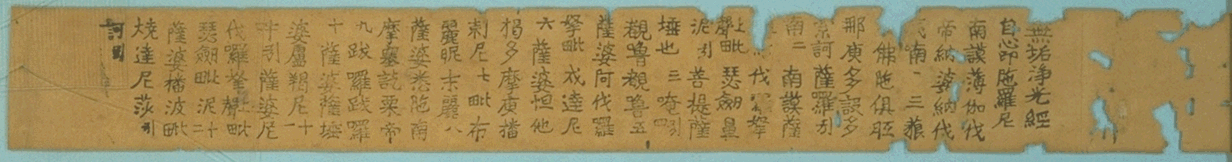 無垢淨光經
自心印陁羅尼
南謨薄伽伐
帝納婆納伐
南一三藐
佛陁俱胝
那庾多設多
訶薩羅引
南二 南謨薩
伐羅拏
毗瑟劒鼻
泥引菩提薩
埵也三唵四
覩嚕覩嚕五
薩婆阿伐羅
拏毗戍達尼
六薩婆怛他
揭多摩庾播
剌尼七毗布
麗昵末麗八
薩婆悉陁南
摩塞訖栗帝
九跋羅跋羅
十薩婆薩埵
婆盧羯尼十一
吽引薩婆尼
伐羅拏毗
瑟劒毗泥十二
薩婆播波毗
燒達尼莎引
訶引